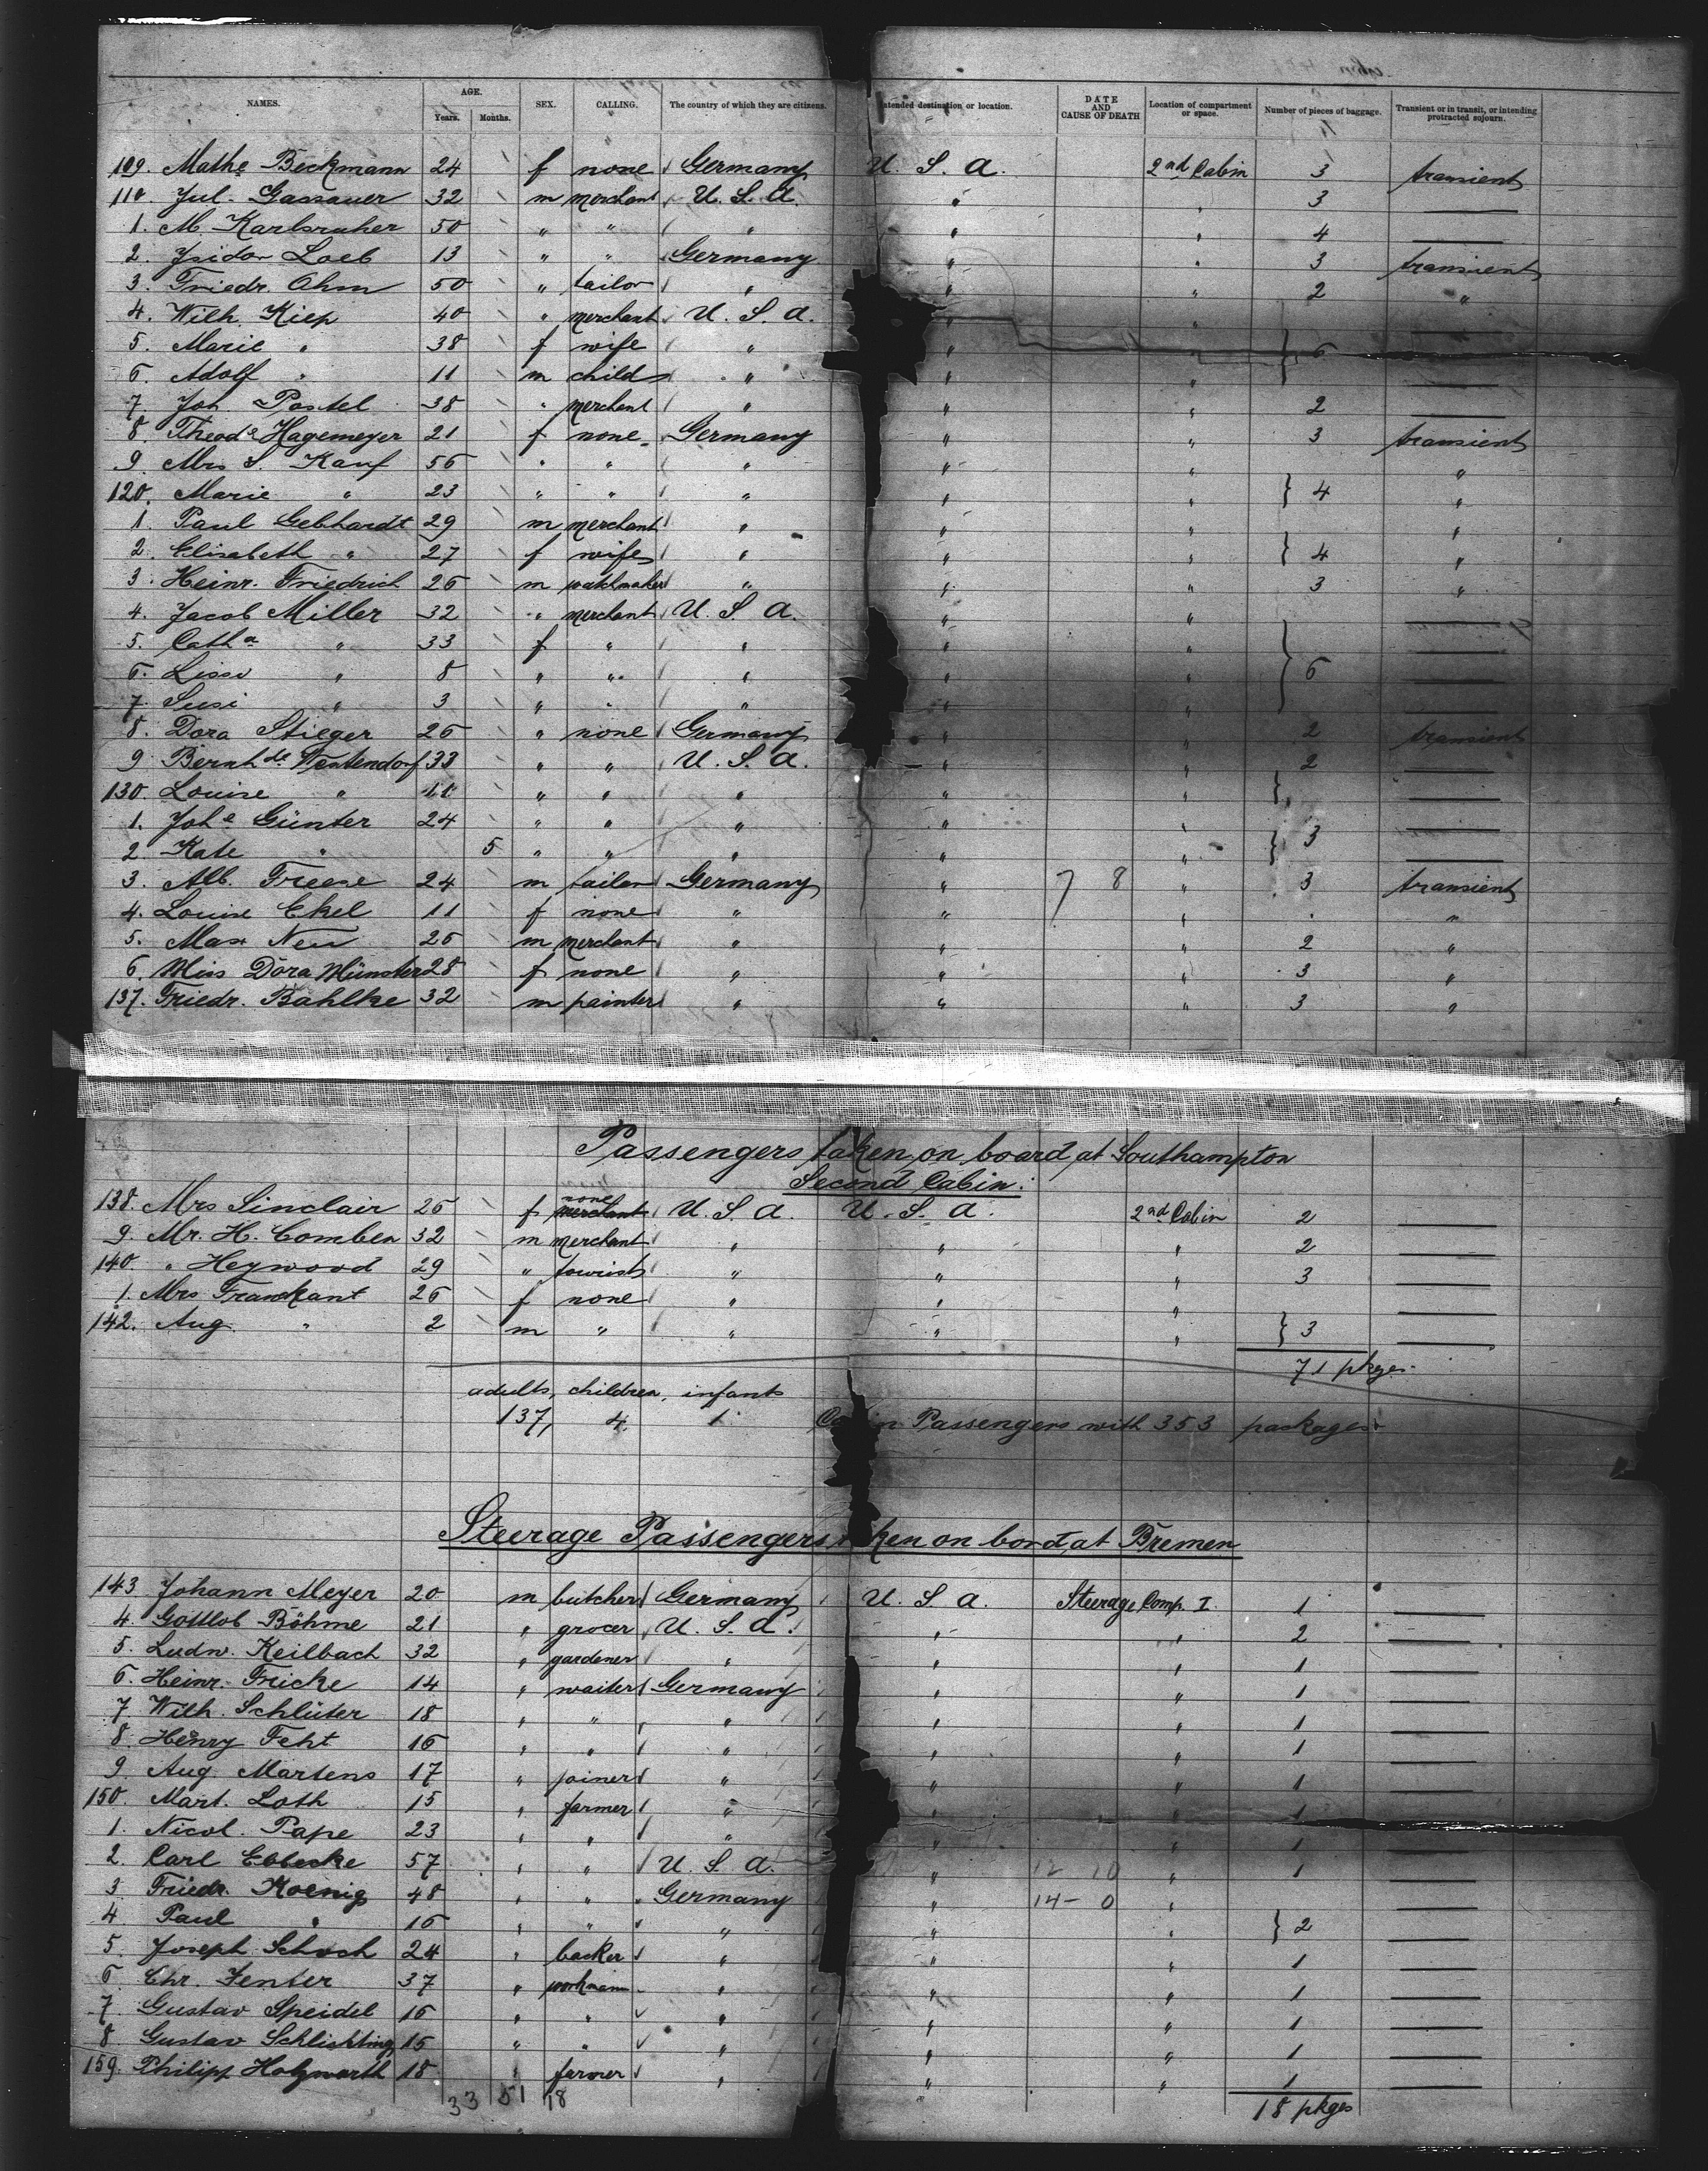 NAMES. AGE. Years. Months. SEX. CALLING. The country of which they are citizens. Intended destination or location. DATE AND CAUSE OF DEATH Location of compartment or space. Number of pieces of baggage. Transient or in transit, or intending protracted sojourn.
109. Mathe Beckmann 24 f none Germany U. S. A. 2nd Cabin 3 transient
110. Jul. Gassauer 32 m merchant U. S. A. " " 3 —
1. M. Karlsruher 50 " " " " " 4 —
2. Isidor Loeb 13 " " Germany " " 3 transient
3. Friedr. Ahm 50 " tailor " " " 2 "
4. Wilh. Kiep 40 " merchant U. S. A. " " —
5. Marie " 38 f wife " " " } 6 —
6. Adolf " 11 m child " " " —
7. Joh. Postel 38 " merchant " " " 2 —
8. Theode Hagemeyer 21 f none Germany " " 3 transient
9. Mrs S. Kauf 56 " " " " " "
120. Marie " 23 " " " " " } 4 "
1. Paul Gebhardt 29 m merchant " " " "
2. Elisabeth " 27 f wife " " " } 4 "
3. Heinr. Friedrich 26 m watchmaker " " " 3 "
4. Jacob Miller 32 " merchant U. S. A. " " —
5. Catha " 33 f " " " " —
6. Lissi " 8 " " " " " } 6 —
7. Susi " 3 " " " " "
8. Dora Stieger 26 " none Germany " " 2 transient
9. Bernhde Wentendorf 33 " " U. S. A. " " 2 —
130. Louise " 11 " " " " " } —
1. Johe Günter 24 " " " " " —
2. Kate " 5 " " " " " } 3 —
3. Alb. Freese 24 m tailor Germany " 7 8 " 3 transient
4. Louise Ekel 11 f none " " " "
5. Max Neu 26 m merchant " " " 2 "
6. Miss Dora Münster 28 f none " " " 3 "
137. Friedr. Bahlke 32 m painter " " " 3 "
Passengers taken on board at Southampton
Second Cabin.
none
138. Mrs Sinclair 26 f merchant U. S. A. U. S. A. 2nd Cabin 2 —
9. Mr. H. Comben 32 m merchant " " " 2 —
140. " Heywood 29 " tourist " " " 3 —
1. Mrs Frankant 26 f none " " " —
142. Aug. " 2 m " " " " } 3 —
71 pkges.
adults, children, infants
137, 4. 1. Cabin Passengers with 353 packages.
Steerage Passengers taken on bord at Bremen
143 Johann Meyer 20 m butcher Germany U. S. A. Steerage Comp. I. 1 —
4. Gottlob Böhme 21 " grocer U. S. A. " " 2 —
5. Ludw. Keilbach 32 " gardener " " " 1 —
6. Heinr. Fricke 14 " waiter Germany " " 1 —
7. Wilh. Schlüter 18 " " " " " 1 —
8. Henry Feht 16 " " " " " 1 —
9. Aug. Martens 17 " joiner " " " 1 —
150. Mart. Loth 15 " farmer " " " 1 —
1. Nicol. Pape 23 " " " " " 1 —
2. Carl Ebbecke 57 " " U. S. A. " 12 10 " 1 —
3. Friedr. Koenig 48 " " Germany " 14 - 0 " —
4. Paul " 16 " " " " " } 2 —
5. Joseph Schoch 24 " backer " " " 1 —
6. Chr. Fenter 37 " workmann " " " 1 —
7. Gustav Speidel 16 " " " " " 1 —
8. Gustav Schlichting 15 " " " " " 1 —
159. Philipp Holzwarth 18 " farmer " " " 1 —
33 51 18 18 pkges